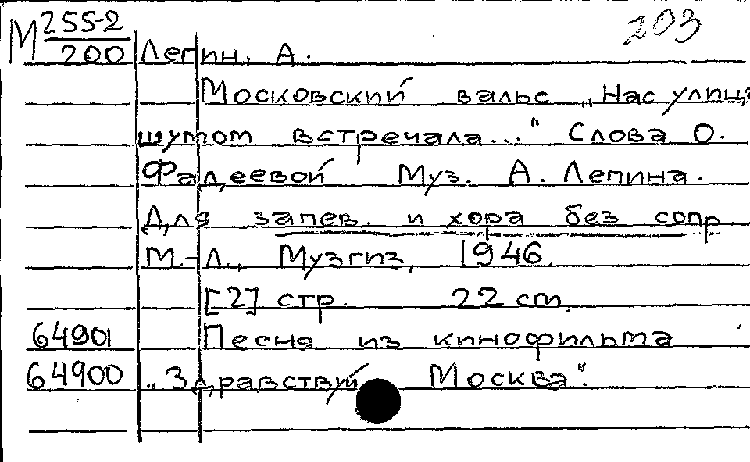 М 255-2
200
203
Лепин, А.
Московский вальс „Нас улица
шумом встречала..." Слова О.
Фадеевой Муз. А. Лепина.
Для запев. и хора без сопр
М.-Л., Музгиз, 1946.
[2] стр. 22 см.
64901 Песня из кинофильма
64900 „Здравствуй Москва".